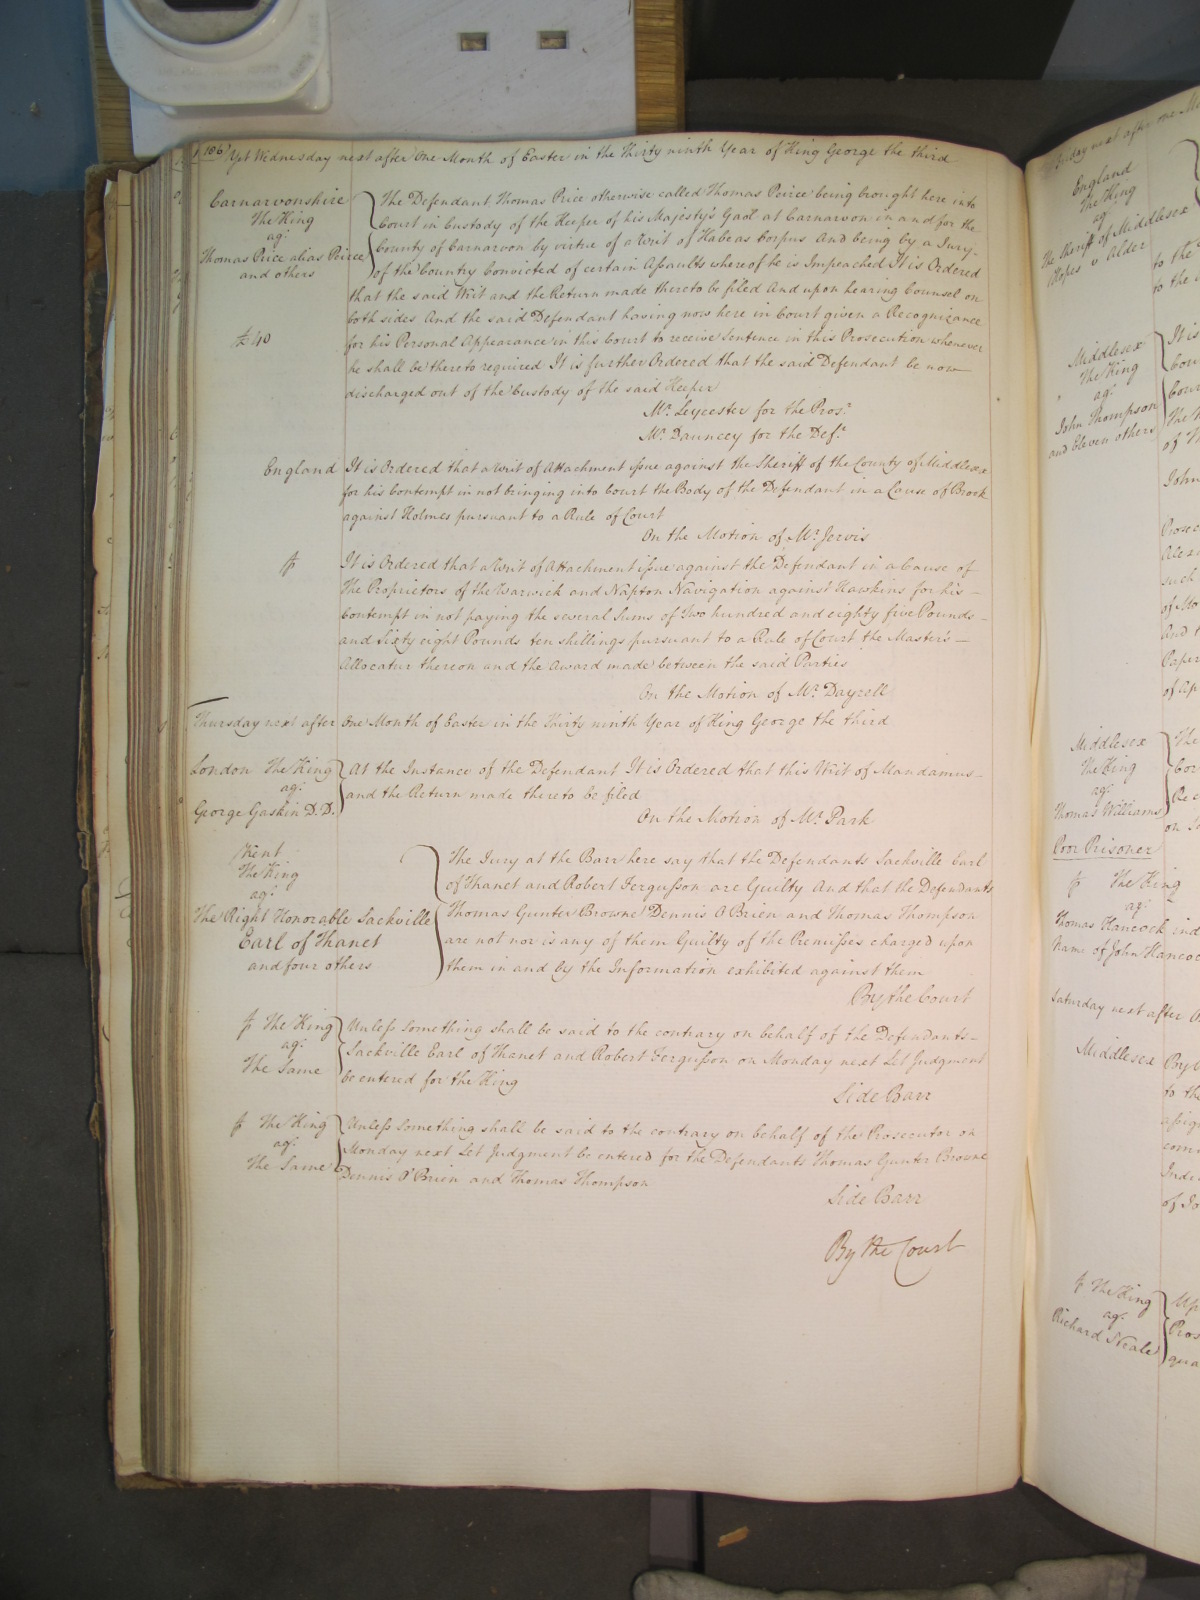 186 Yet Wednesday next after One Month of Easter in the Thirty ninth Year of King George the third
Carnarvonshire
The King
agt
Thomas Price alias Peirce
and others
£40
The Defendant Thomas Price otherwise called Thomas Peirce being brought here into
Court in Custody of the Keeper of his Majesty's Gaol at Carnarvon in and for the
County of Carnarvon by virtue of a Writ of Habeas Corpus And being by a Jury
of the Country Convicted of certain Assaults whereof he is Impeached It is Ordered
that the said Writ and the Return made thereto be filed And upon hearing Counsel on
both sides And the said Defendant having now here in Court given a Recognizance
for his Personal Appearance in this Court to receive Sentence in this Prosecution whenever
he shall be thereto required It is further Ordered that the said Defendant be now
discharged out of the Custody of the said Keeper
Mr. Leycester for the Prosr.
Mr. Dauncey for the Deft.
England It is Ordered that a Writ of Attachment issue against the Sheriff of the County of Middlesex
for his Contempt in not bringing into Court the Body of the Defendant in a Cause of Brook
against Holmes pursuant to a Rule of Court
On the Motion of Mr. Jervis
It is Ordered that a Writ of Attachment issue against the Defendant in a Cause of
The Proprietors of the Warwick and Napton Navigation against Hawkins for his
Contempt in not paying the several Sums of Two hundred and eighty five Pounds
and Sixty eight Pounds ten shillings pursuant to a Rule of Court the Master's
Allocatur thereon and the Award made between the said Parties
On the Motion of Mr. Dayrell
Thursday next after One Month of Easter in the Thirty ninth Year of King George the third
London The King
agt
George Gaskin D.D.
At the Instance of the Defendant It is Ordered that this Writ of Mandamus
and the Return made thereto be filed
On the Motion of Mr. Park
Kent
The King
agt
The Right Honorable Sackville
Earl of Thanet
and four others
The Jury at the Barr here say that the Defendants Sackville Earl
of Thanet and Robert Fergusson are Guilty And that the Defendants
Thomas Gunter Browne Dennis O Brien and Thomas Thompson
are not nor is any of them Guilty of the Premisses charged upon
them in and by the Information exhibited against them
By the Court
The King
agt
The Same
Unless Something shall be said to the contrary on behalf of the Defendants
Sackville Earl of Thanet and Robert Fergusson on Monday next Let Judgment
be entered for the King
Side Barr
The King
agt
The Same
Unless Something shall be said to the contrary on behalf of the Prosecutor on
Monday next Let Judgment be entered for the Defendants Thomas Gunter Browne
Dennis O'Brien and Thomas Thompson
Side Barr
By the Court
next after one
England
The King
agt
The Sheriff of Middlesex
v Alder
to the
to the
Middlesex
The King
agt
John Thompson
and Eleven others
It is
The
John
such
Middlesex
The King
agt
Thomas Williams
The
Poor Prisoner
The King
agt
Thomas Hancock
Name of John Hancock
Saturday next after
Middlesex
to the
The King
agt
Richard Neale